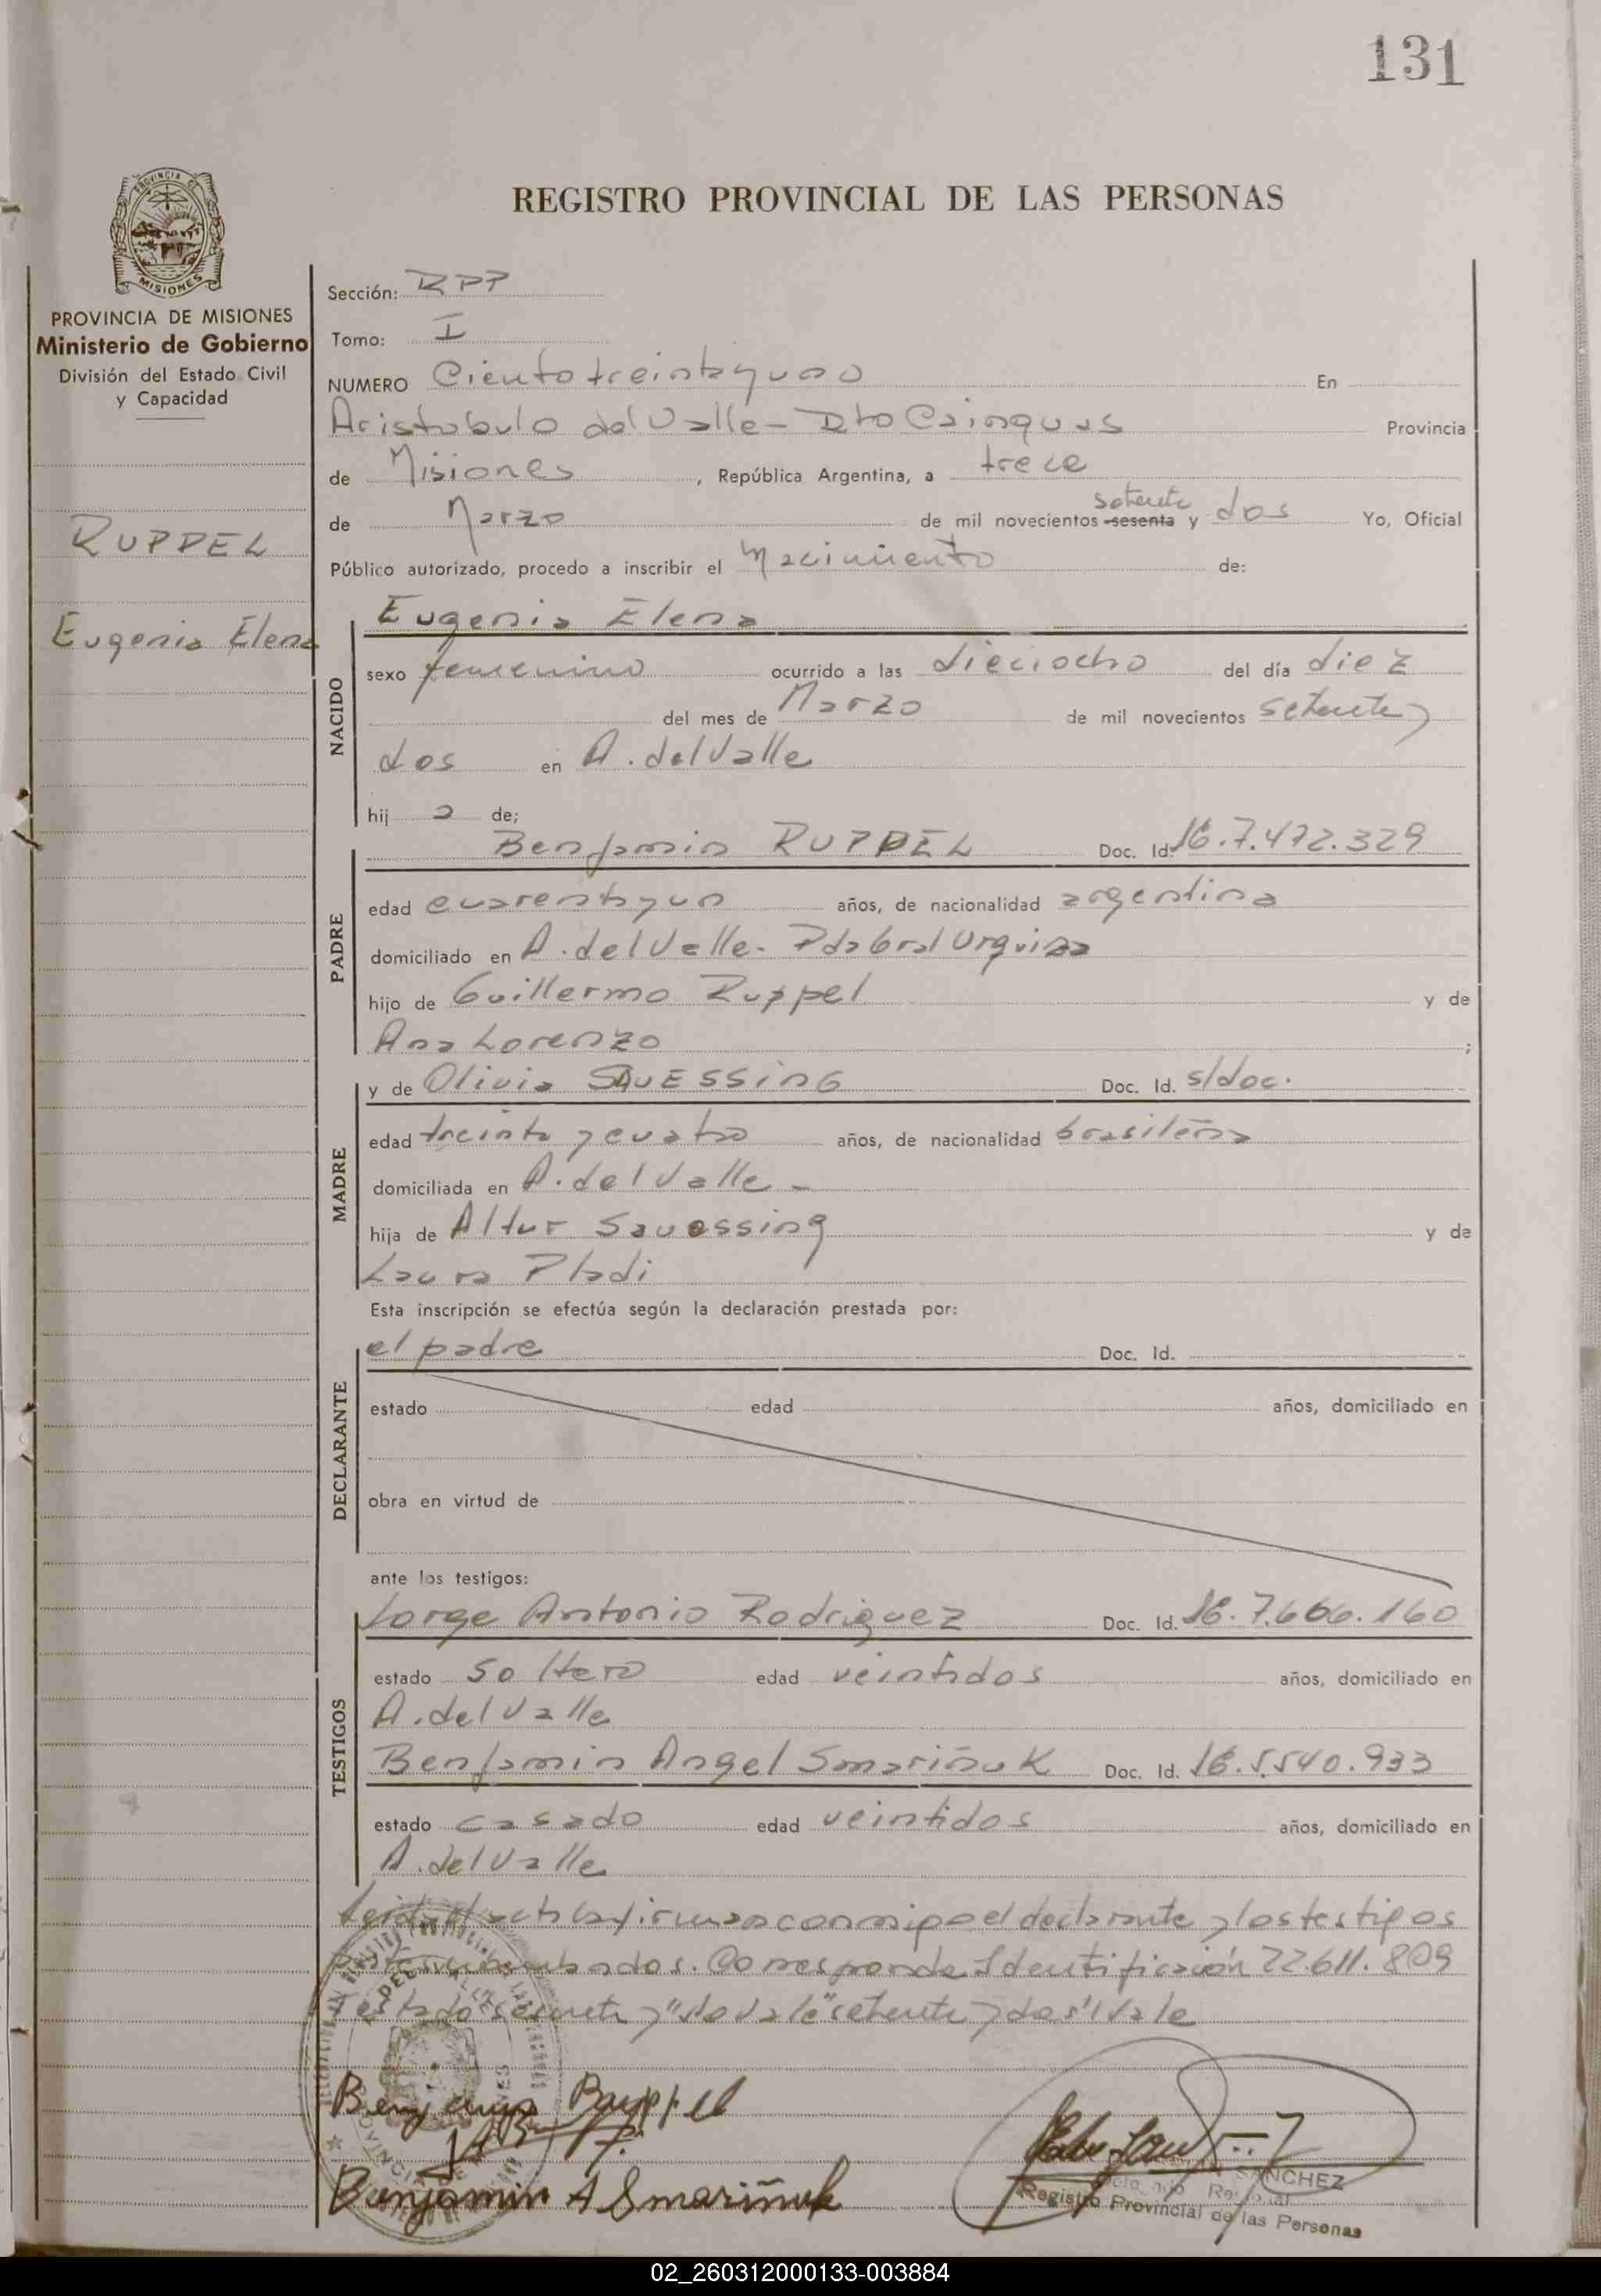 131
REGISTRO PROVINCIAL DE LAS PERSONAS
PROVINCIA DE MISIONES
Ministerio de Gobierno
División del Estado Civil
y Capacidad
RUPPEL
Eugenia Elena
Sección: RPP
Tomo: I
NUMERO Ciento treintayuno En
Aristobulo del Valle - Dto Cainguas Provincia
de Misiones, República Argentina, a trece
setenta
de Marzo de mil novecientos sesenta y dos Yo, Oficial
Público autorizado, procedo a inscribir el Nacimiento de:
NACIDO
Eugenia Elena
sexo femenino ocurrido a las dieciocho del día diez
del mes de Marzo de mil novecientos setenta y
dos en A. del Valle
hij a de;
PADRE
Benjamin RUPPEL Doc. Id. 7.472.329
edad cuarentayun años, de nacionalidad argentina
domiciliado en A. del Valle - Pda Gral Urquiza
hijo de Guillermo Ruppel y de
Ana Lorenzo ;
MADRE
y de Olivia SAUESSING Doc. Id. s/doc.
edad treinta y cuatro años, de nacionalidad brasileña
domiciliada en A. del Valle -
hija de Altur Sauessing y de
Laura Pladi
Esta inscripción se efectúa según la declaración prestada por:
DECLARANTE
el padre Doc. Id.
estado edad años, domiciliado en
obra en virtud de
ante los testigos:
TESTIGOS
Jorge Antonio Rodriguez Doc. Id. 7.606.160
estado soltero edad veintidos años, domiciliado en
A. del Valle
Benjamin Angel Smariñuk Doc. Id. 5.540.933
estado casado edad veintidos años, domiciliado en
A. del Valle
Leida el acta la firman conmigo el declarante y los testigos
Corresponde Identificación 22.611.809
Testado "sesenta y" no vale "setenta y dos" vale
Benjamin Ruppel
Benjamin A Smariñuk
SANCHEZ
Registro Provincial de las Personas
02_260312000133-003884